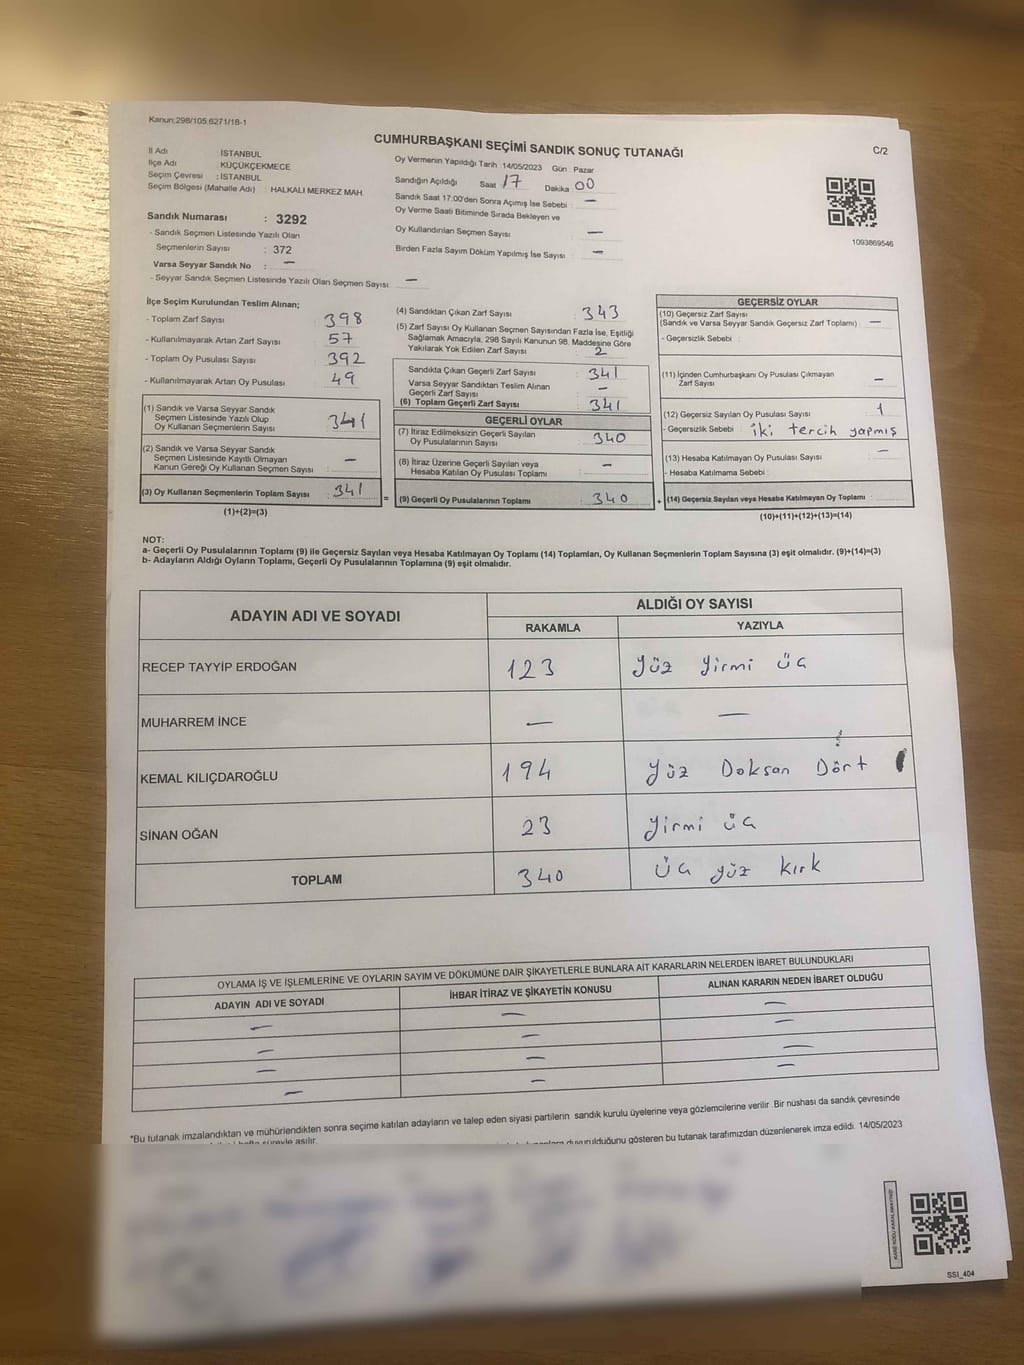 Kanun;298/105,6271/18-1
CUMHURBAŞKANI SEÇİMİ SANDIK SONUÇ TUTANAĞI
C/2
İl Adı : İSTANBUL
İlçe Adı : KÜÇÜKÇEKMECE
Seçim Çevresi : İSTANBUL
Seçim Bölgesi (Mahalle Adı) : HALKALI MERKEZ MAH.
Oy Vermenin Yapıldığı Tarih :14/05/2023 Gün : Pazar
Sandığın Açıldığı Saat 17 Dakika 00
Sandık Saat 17.00'den Sonra Açımış İse Sebebi : —
Oy Verme Saati Bitiminde Sırada Bekleyen ve
Oy Kullandırılan Seçmen Sayısı : —
Birden Fazla Sayım Döküm Yapılmış İse Sayısı : —
1093869546
Sandık Numarası : 3292
- Sandık Seçmen Listesinde Yazılı Olan
Seçmenlerin Sayısı : 372
Varsa Seyyar Sandık No : —
- Seyyar Sandık Seçmen Listesinde Yazılı Olan Seçmen Sayısı : —
İlçe Seçim Kurulundan Teslim Alınan;
- Toplam Zarf Sayısı : 398
- Kullanılmayarak Artan Zarf Sayısı : 57
- Toplam Oy Pusulası Sayısı : 392
- Kullanılmayarak Artan Oy Pusulası : 49
(1) Sandık ve Varsa Seyyar Sandık
Seçmen Listesinde Yazılı Olup
Oy Kullanan Seçmenlerin Sayısı : 341
(2) Sandık ve Varsa Seyyar Sandık
Seçmen Listesinde Kayıtlı Olmayan
Kanun Gereği Oy Kullanan Seçmen Sayısı : —
(3) Oy Kullanan Seçmenlerin Toplam Sayısı : 341
(1)+(2)=(3)
(4) Sandıktan Çıkan Zarf Sayısı : 343
(5) Zarf Sayısı Oy Kullanan Seçmen Sayısından Fazla İse, Eşitliği
Sağlamak Amacıyla, 298 Sayılı Kanunun 98. Maddesine Göre
Yakılarak Yok Edilen Zarf Sayısı : 2
Sandıkta Çıkan Geçerli Zarf Sayısı : 341
Varsa Seyyar Sandıktan Teslim Alınan
Geçerli Zarf Sayısı : —
(6) Toplam Geçerli Zarf Sayısı : 341
GEÇERLİ OYLAR
(7) İtiraz Edilmeksizin Geçerli Sayılan
Oy Pusulalarının Sayısı : 340
(8) İtiraz Üzerine Geçerli Sayılan veya
Hesaba Katılan Oy Pusulası Toplamı : —
= (9) Geçerli Oy Pusulalarının Toplamı : 340
GEÇERSİZ OYLAR
(10) Geçersiz Zarf Sayısı
(Sandık ve Varsa Seyyar Sandık Geçersiz Zarf Toplamı) : —
- Geçersizlik Sebebi :
(11) İçinden Cumhurbaşkanı Oy Pusulası Çıkmayan
Zarf Sayısı : —
(12) Geçersiz Sayılan Oy Pusulası Sayısı : 1
- Geçersizlik Sebebi : iki tercih yapmış
(13) Hesaba Katılmayan Oy Pusulası Sayısı : —
- Hesaba Katılmama Sebebi :
+ (14) Geçersiz Sayılan veya Hesaba Katılmayan Oy Toplamı :
(10)+(11)+(12)+(13)=(14)
NOT:
a- Geçerli Oy Pusulalarının Toplamı (9) ile Geçersiz Sayılan veya Hesaba Katılmayan Oy Toplamı (14) Toplamları, Oy Kullanan Seçmenlerin Toplam Sayısına (3) eşit olmalıdır. (9)+(14)=(3)
b- Adayların Aldığı Oyların Toplamı, Geçerli Oy Pusulalarının Toplamına (9) eşit olmalıdır.
ADAYIN ADI VE SOYADI ALDIĞI OY SAYISI
RAKAMLA YAZIYLA
RECEP TAYYİP ERDOĞAN 123 Yüz Yirmi üç
MUHARREM İNCE — —
KEMAL KILIÇDAROĞLU 194 Yüz Doksan Dört
SİNAN OĞAN 23 Yirmi üç
TOPLAM 340 üç yüz kırk
OYLAMA İŞ VE İŞLEMLERİNE VE OYLARIN SAYIM VE DÖKÜMÜNE DAİR ŞİKAYETLERLE BUNLARA AİT KARARLARIN NELERDEN İBARET BULUNDUKLARI
ADAYIN ADI VE SOYADI İHBAR İTİRAZ VE ŞİKAYETİN KONUSU ALINAN KARARIN NEDEN İBARET OLDUĞU
— — —
— — —
— — —
— — —
*Bu tutanak imzalandıktan ve mühürlendikten sonra seçime katılan adayların ve talep eden siyasi partilerin sandık kurulu üyelerine veya gözlemcilerine verilir .Bir nüshası da sandık çevresinde
hafta süreyle asılır.
duyurulduğunu gösteren bu tutanak tarafımızdan düzenlenerek imza edildi. 14/05/2023
SSI_404